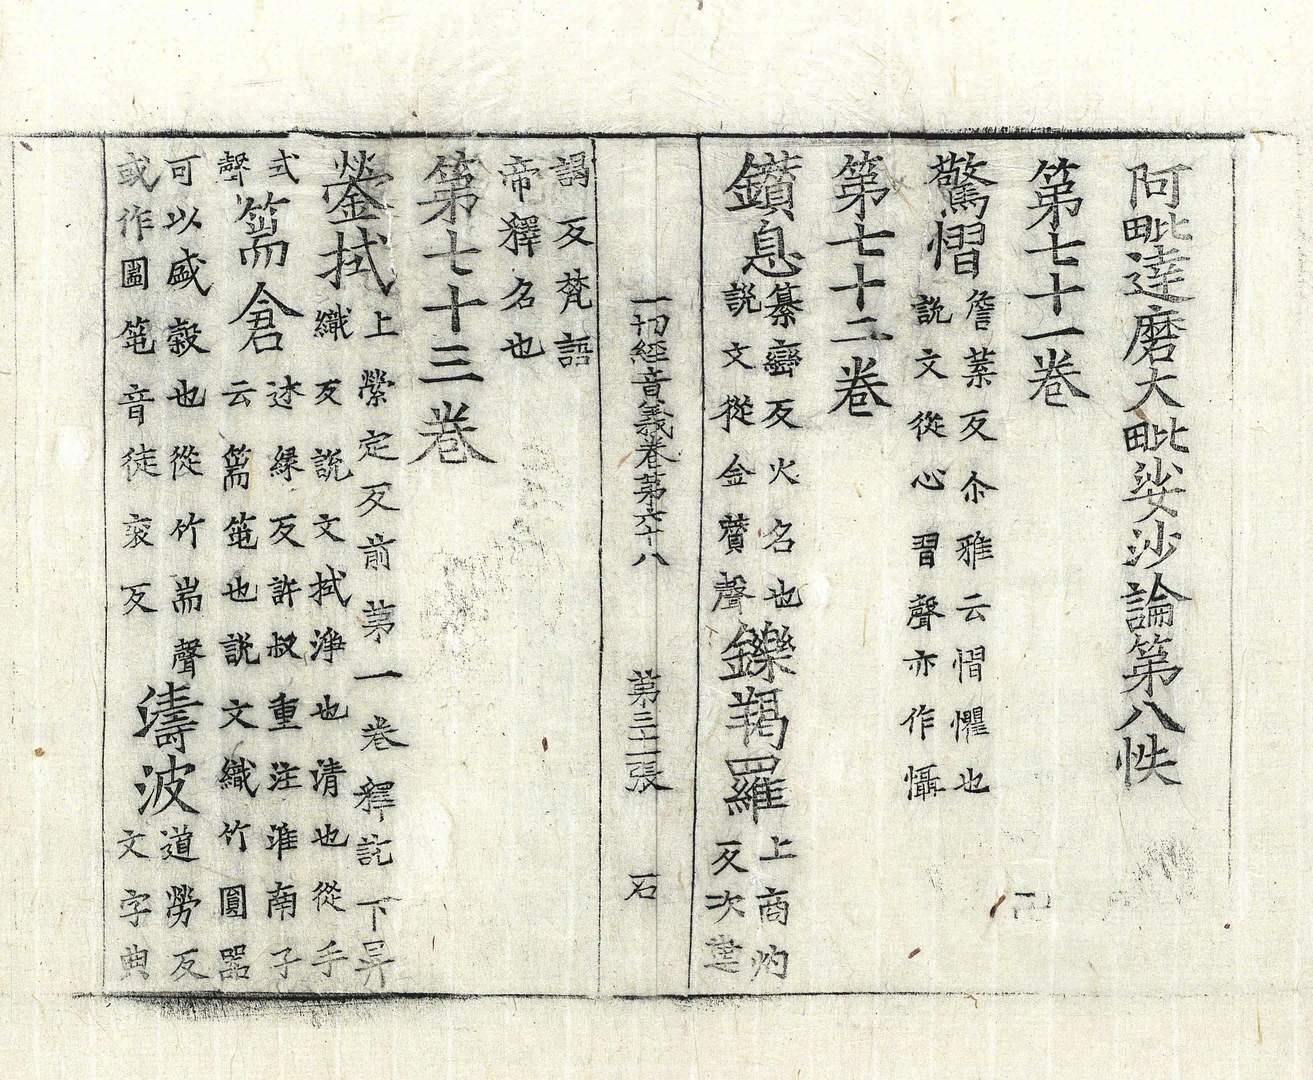 阿毗達磨大毗娑沙論第八帙
第七十一卷
驚慴
詹葉反尒雅云慴懼也
說文從心習聲亦作懾
第七十二卷
鑚息
纂巒反火名也
說文從金贊聲
鑠羯羅
上商灼
反次建
一切經音義卷第六十八 第三十二張 石
謁反梵語
帝釋名也
第七十三卷
鎣拭
上縈定反前第一卷釋訖下昇
織反說文拭淨也清也從手
式
聲
篅倉
述緣反許叔重注淮南子
云篅𥫱也說文織竹圓器
可以盛穀也從竹耑聲
或作圌𥫱音徒衮反
濤波
道勞反
文字典